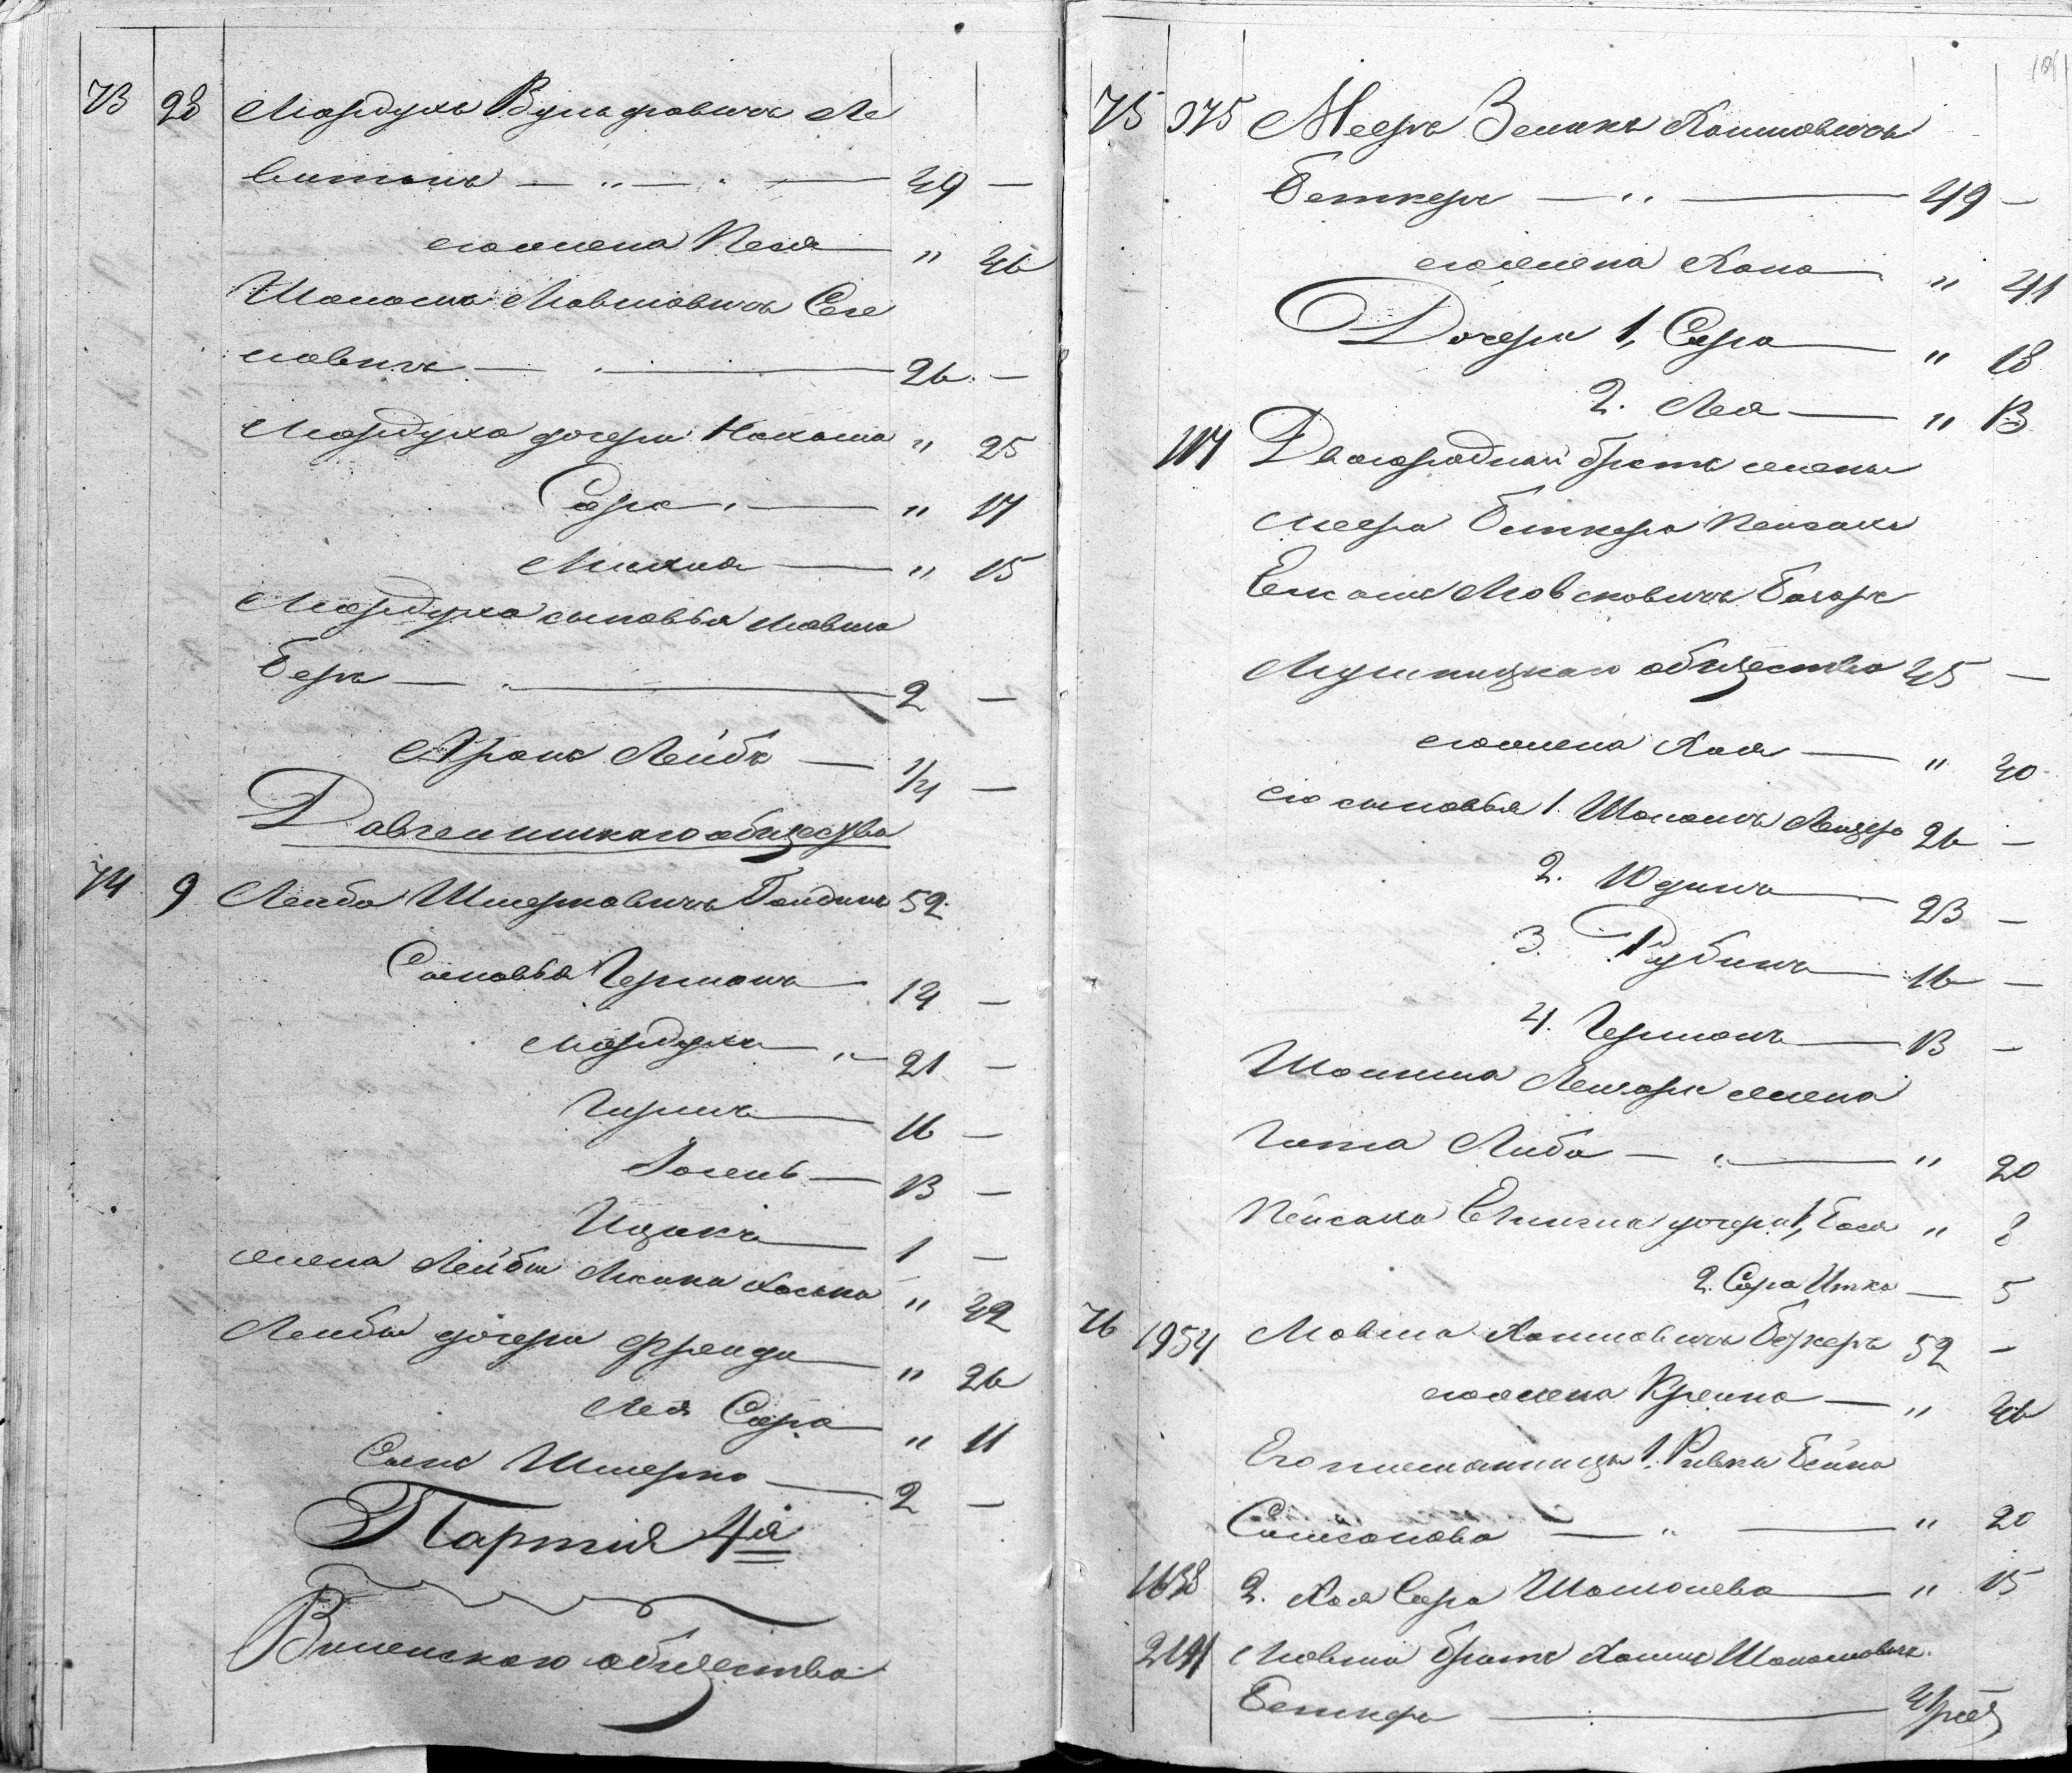 73 28 Мордухъ Вульфовичъ Ле
витанъ — „ — 49 —
его жена Песя — „ 46
Шоломъ Мовшовичъ Сег
ловичъ — 26 —
Мордуха дочери Нахама „ 25
Сора — „ 17
Михля — „ 15
Мордуха сыновья Мовша
Беръ — 2 —
Аронъ Лейба — 1/4 —
Довгелишкаго общества
74 9 Лейба Шмерковичъ Гордонъ 52
Сыновья Германъ — 14 —
Мордухъ — „ 21 —
Гиршъ — 16 —
13 —
Ицикъ — 1 —
жена Лейбы Хаська „ 42
Лейбы дочери Фрейда — „ 26
Лея Сора — „ 11
Сынъ Шмерко — 2 —
Партія 4я
Виленскаго общества
75 375 Мееръ Зеликъ Хаимовичъ
Беткеръ — „ — 49 —
его жена Хана — „ 41
Дочери 1, Сора — „ 18
2. Лея — „ 13
117 Двоюродный братъ жены
Меера Беткера Пейсахъ
Мовшовичъ
общества 45 —
его жена Хая — „ 40
его сыновья 1. Шоломъ Лейзеръ 26 —
2. Юдель — 23 —
3. Рубинъ — 16 —
4. Германъ — 13 —
Шолома Лейзера жена
Гита Либа — „ — „ 20
Пейсаха дочери 1, Бася „ 8
2. Сора Итка — 5
76 1954 Мовша Хаимовичъ Беткеръ 52 —
его жена Крейна — „ 46
Его племянницы 1. Ривка Бейна
— „ — „ 20
1638 2. Хая Сора Шоломова — „ 15
2191 Мовши братъ Хаимъ Шоломовичъ
Беткеръ —